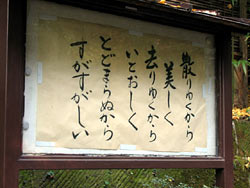 散りゆくから
美しく
去りゆくから
いとおしく
とどまらぬから
すがすがしい